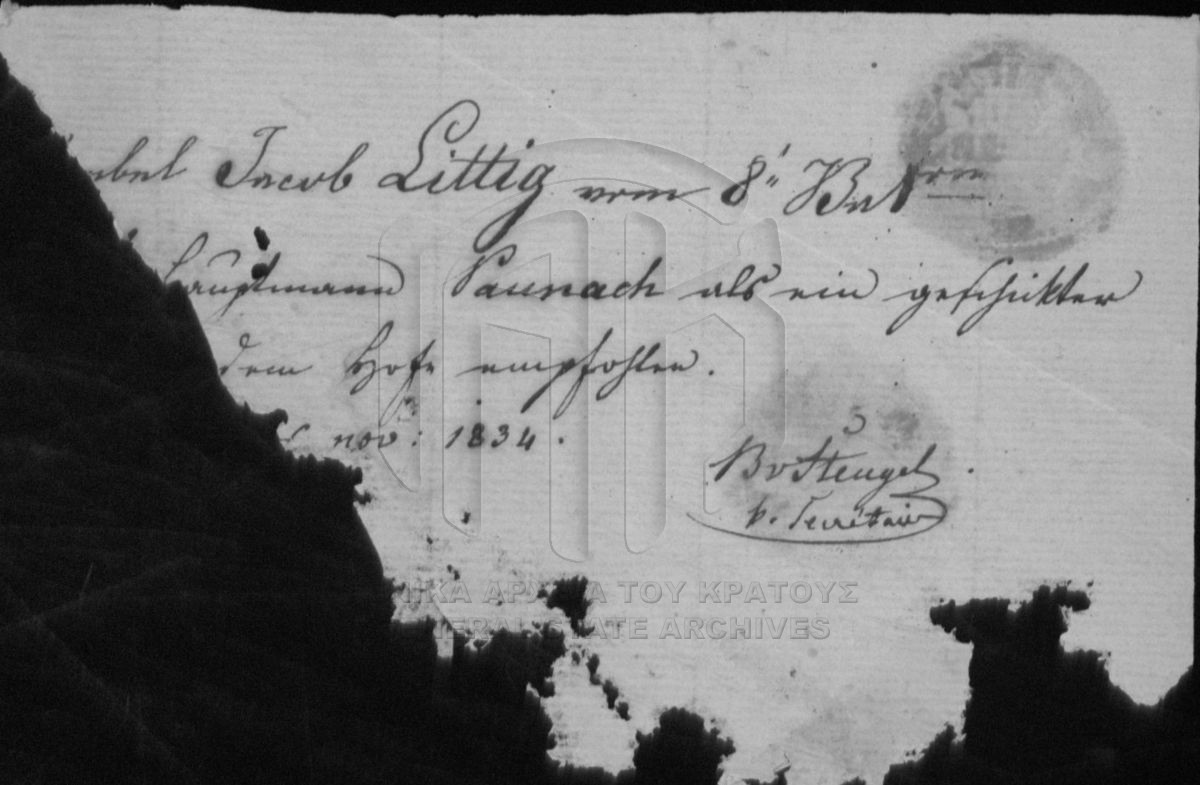 Jacob Littig vom 8" Bat
Hauptmann Saunach als ein geschickter
dem Hofe empfohlen.
nov: 1834.
BvStengel
p. Secrétair
ΑΡΧΕΙΑ ΤΟΥ ΚΡΑΤΟΥΣ
STATE ARCHIVES